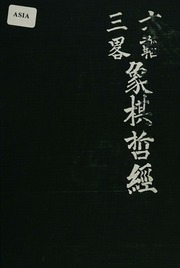 ASIA
六韜
三畧
象棋哲經